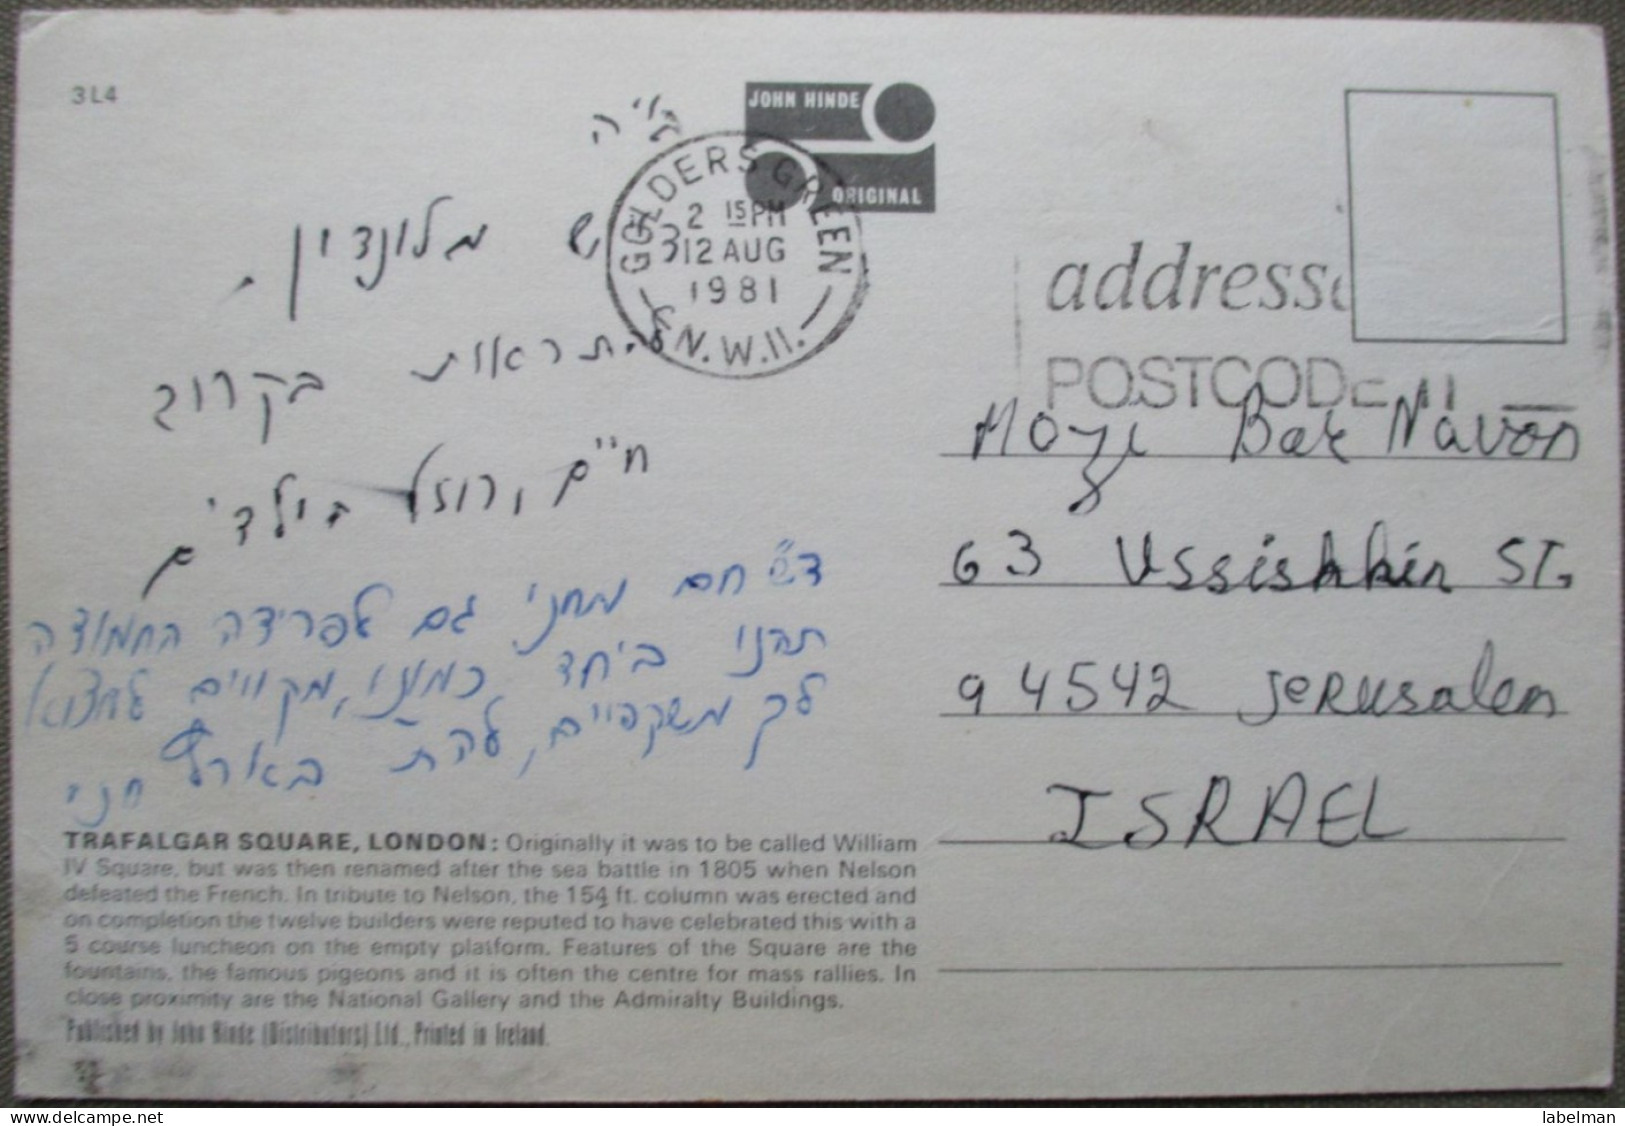 3L4
JOHN HINDE
ORIGINAL
GOLDERS GREEN
2 15 PM
12 AUG
1981
N.W.11.
POSTCODE
ב"ה
ד"ש מלונדון.
להתראות בקרוב
חיים, רוזל בילדים
ד"ש חם ממני גם לפרידה החמודה
תהנו ביחד כמונו, מקווים למצוא
לך משקפיים, להת' בארץ חני
Bar Navon
63 Ussishkin ST.
94542 Jerusalem
ISRAEL
TRAFALGAR SQUARE, LONDON: Originally it was to be called William
IV Square, but was then renamed after the sea battle in 1805 when Nelson
defeated the French. In tribute to Nelson, the 154 ft. column was erected and
on completion the twelve builders were reputed to have celebrated this with a
5 course luncheon on the empty platform. Features of the Square are the
fountains, the famous pigeons and it is often the centre for mass rallies. In
close proximity are the National Gallery and the Admiralty Buildings.
Published by John Hinde (Distributors) Ltd., Printed in Ireland.
labelman